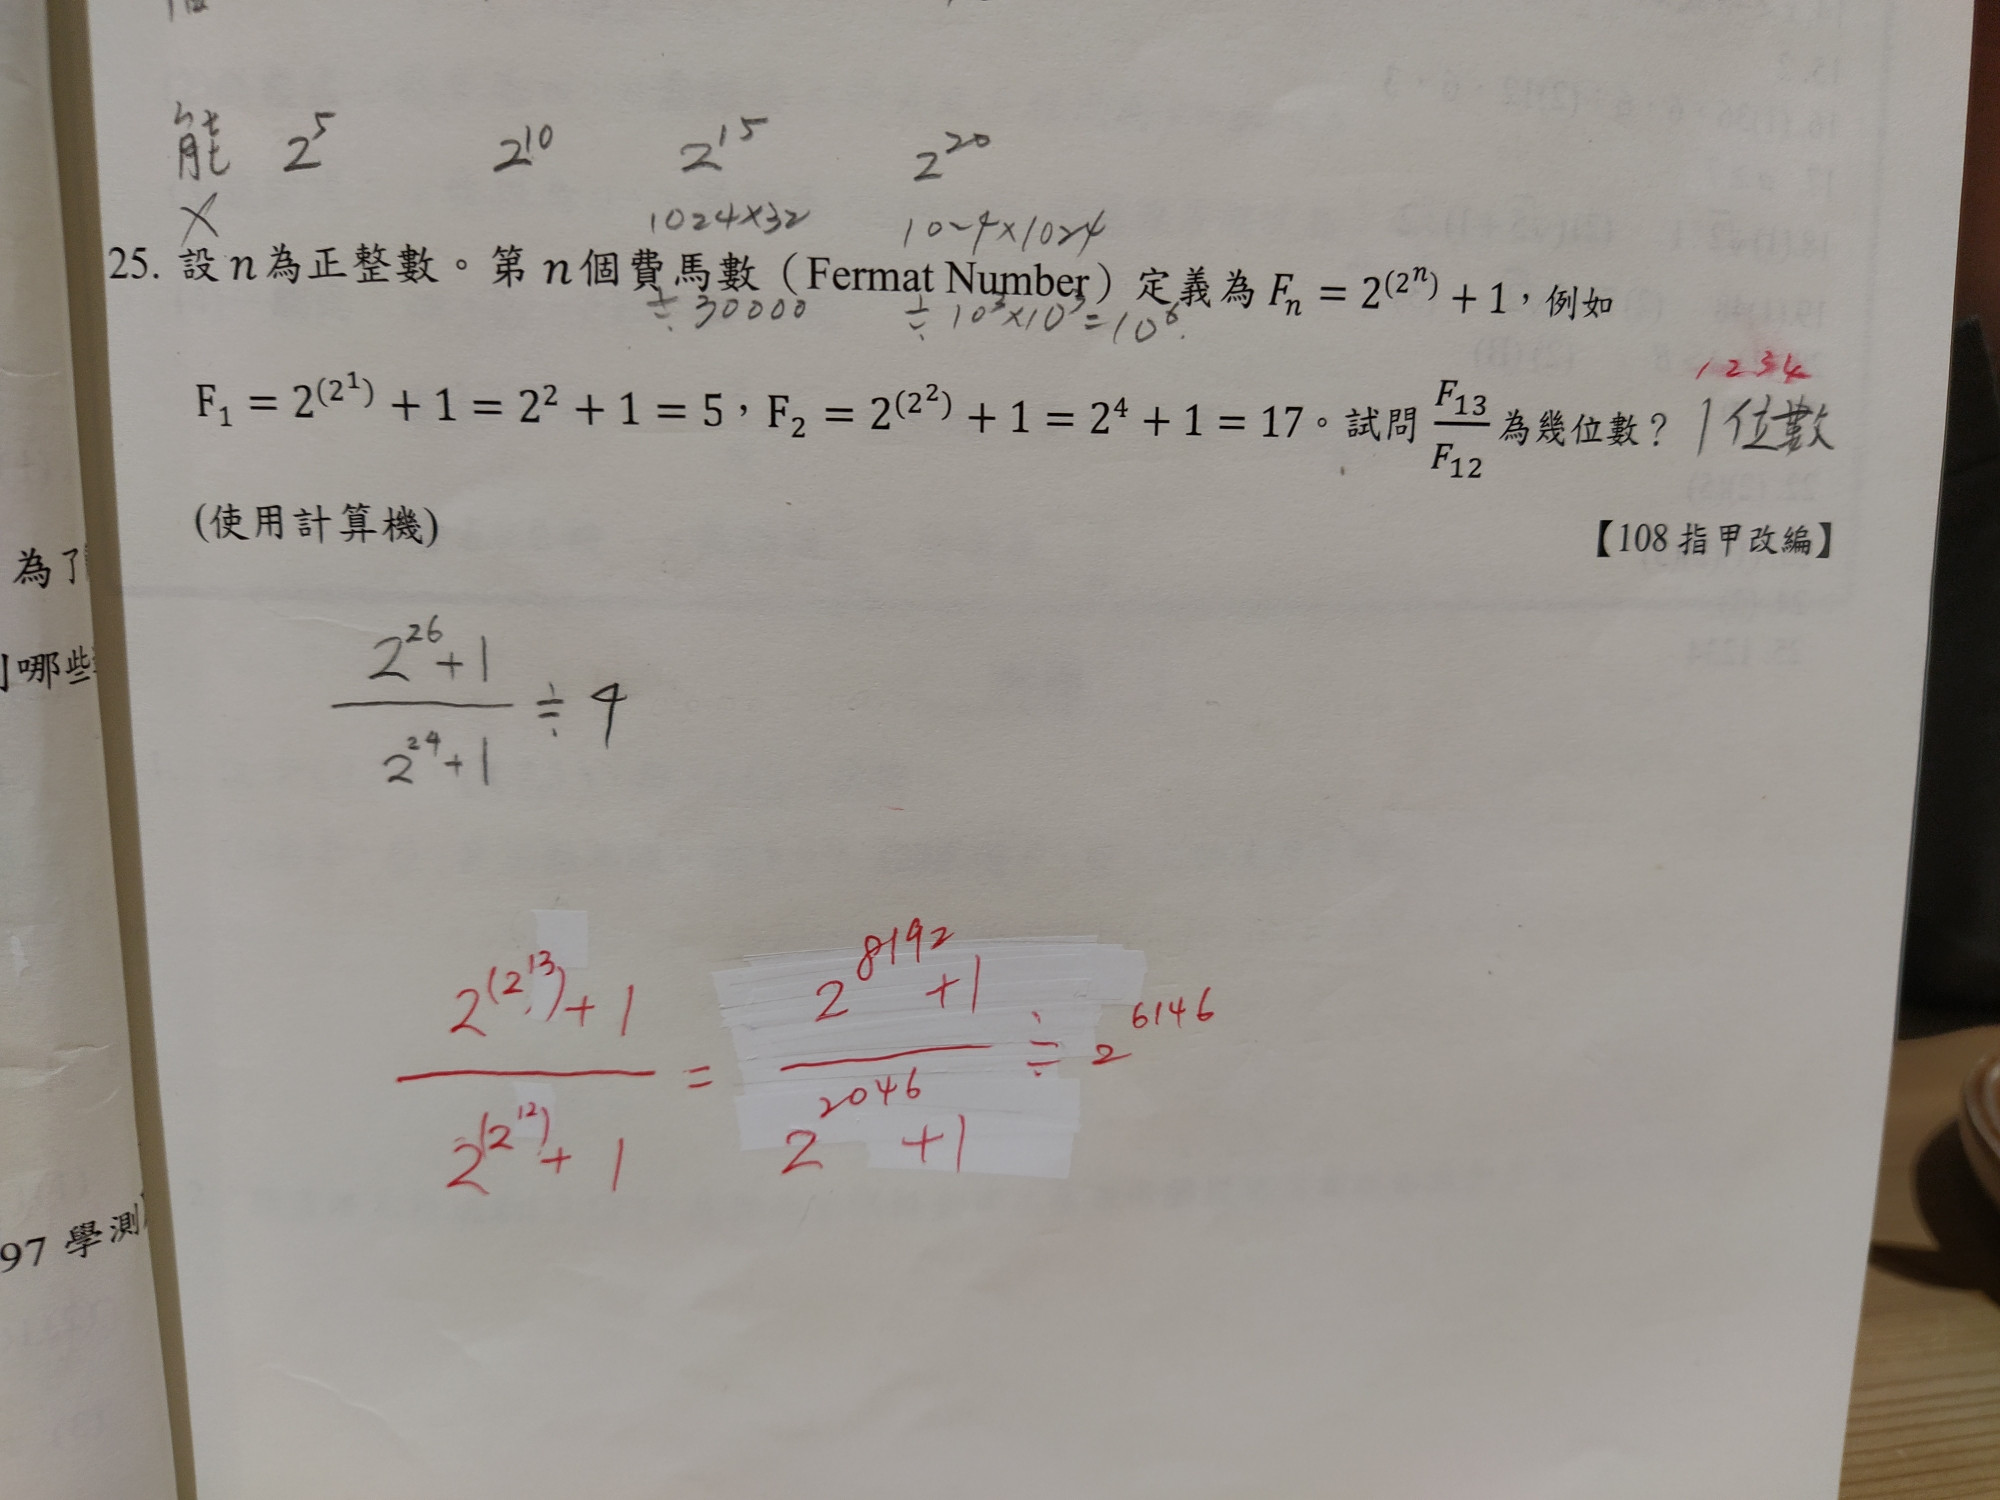 能 2^5 2^10 2^15 2^20
X 1024×32 1024×1024
25. 設n為正整數。第n個費馬數（Fermat Number）定義為 F_n = 2^(2^n) + 1，例如
≑ 30000 ≑ 10^3×10^3=10^6
F_1 = 2^(2^1) + 1 = 2^2 + 1 = 5，F_2 = 2^(2^2) + 1 = 2^4 + 1 = 17。試問 F_13/F_12 為幾位數？ 1位數
1234
(使用計算機)
【108 指甲改編】
為了
哪些
(2^26+1)/(2^24+1) ≑ 4
(2^(2^13)+1)/(2^(2^12)+1) = (2^8192+1)/(2^2046+1) ≑ 2^6146
97 學測